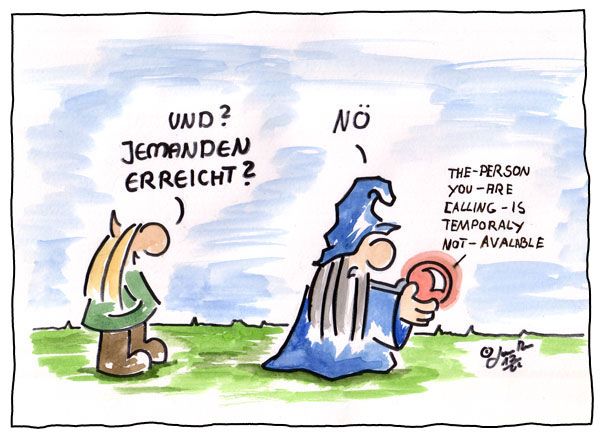 UND?
JEMANDEN
ERREICHT?
NÖ
THE-PERSON
YOU-ARE
CALLING-IS
TEMPORALY
NOT-AVALABLE